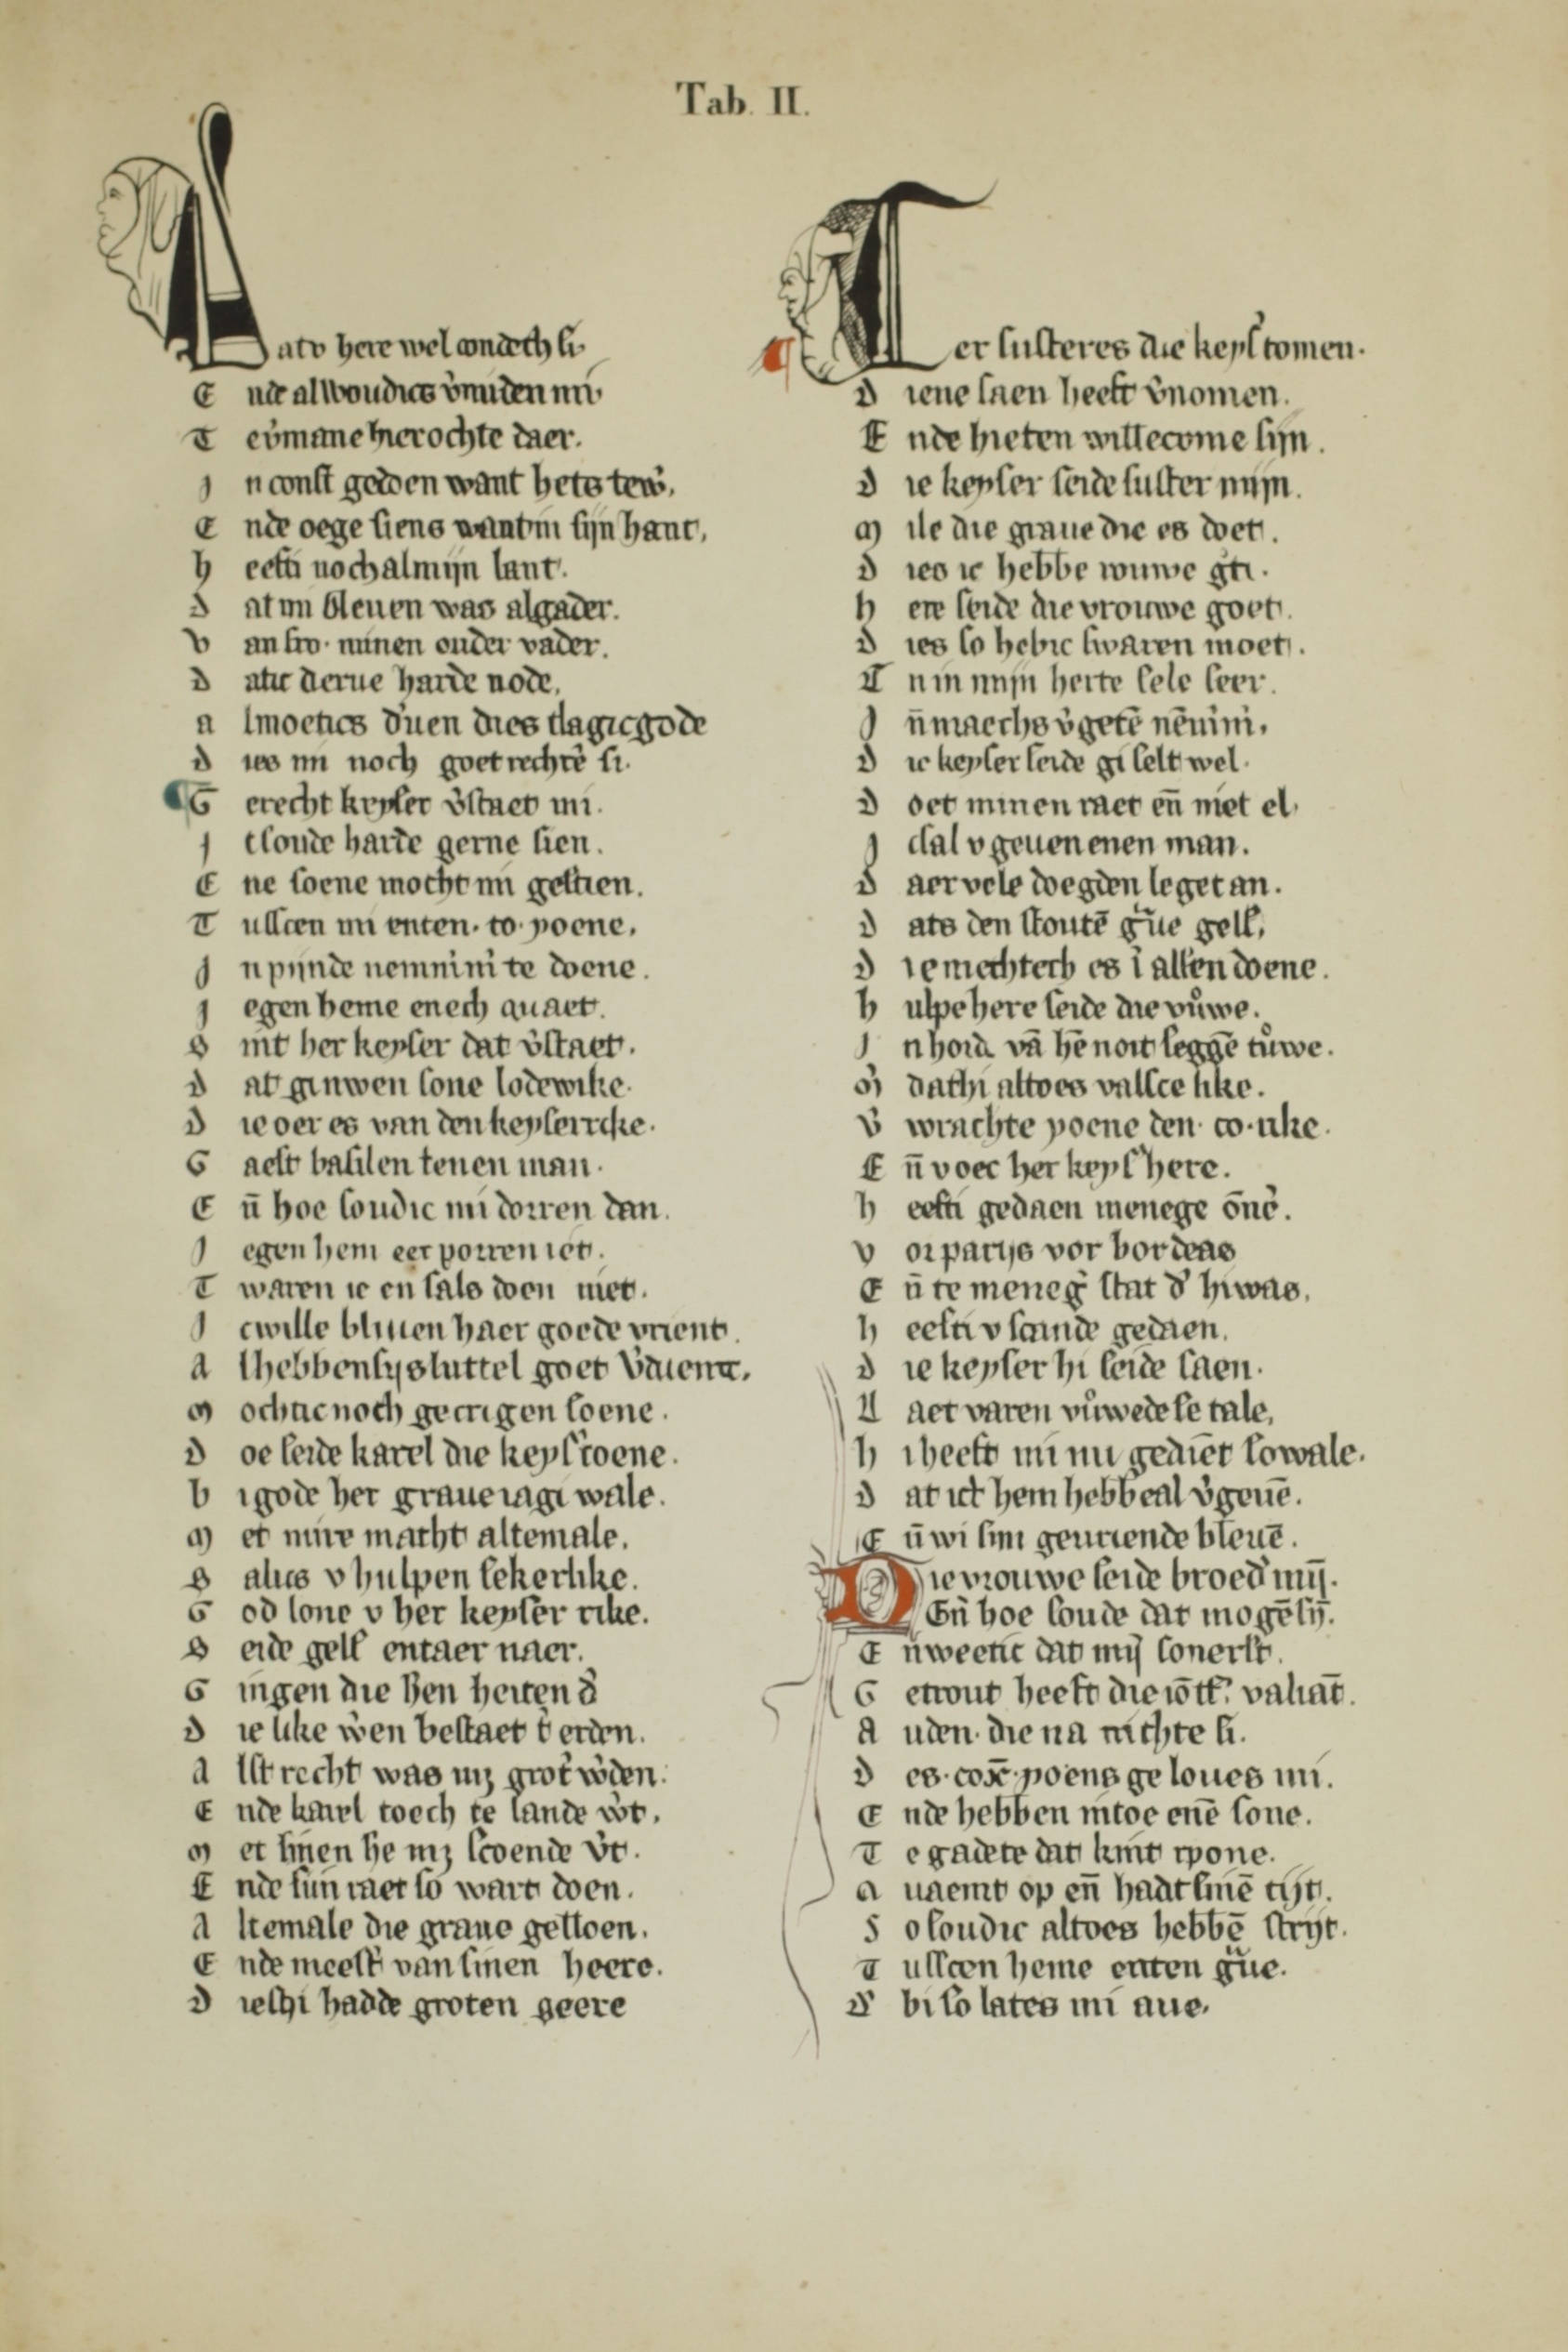 Tab. II.
Latv here wel condech si.
Ende al woudics v̉miden mi.
Tev̉mane hier ochte daer.
Jn const gedoen want hets tew̉.
Ende oege siens want in sijn hant.
heefti noch al mijn lant.
Dat mi bleuen was algader.
van fro. minen ouder vader.
Datic derue harde node.
almoetics d̉uen dies clagic gode
dies mi noch goet rechtẻ si.
Gerecht keyser v̉staet mi.
jc soude harde gerne sien.
Ene soene mocht mi gescien.
Tusscen mi enten. co. yoene.
jn pijnde nemnimi te doene.
jegen heme enech quaet.
Sint her keyser dat v̉staet.
Dat gi uwen sone lodewike.
Die oer es van den keyserrike.
Gaeft basilen tenen man.
En̄ hoe soudic mi dorren dan.
Jegen hem eer porren iet.
Twaren ic en sals doen niet.
Jc wille bliuen haer goede vrient.
Al hebben sijs luttel goet v̉dient.
mochtic noch gecrigen soene.
Doe seide karel die keys̉ coene.
bi gode her graue iagi wale.
Met mire macht altemale.
Salics v hulpen sekerlike.
God lone v her keyser rike.
Seide gell̉ entaer naer.
Gingen die heren heiten d̉
Die like w̉en bestaet t̉ erden.
Alst recht was mz grot̉ w̉den.
Ende karel toech te lande w̉t.
Met sinen he mz scoende v̉t.
Ende sijn raet so wart doen.
Altemale die graue gelloen.
Ende meest̉ van sinen heere.
Dieshi hadde groten geere
Ter susteres die keys̉ comen.
Diene saen heeft v̉nomen.
Ende hieten willecome sijn.
Die keyser seide suster mijn.
Mile die graue die es doet.
Dies ic hebbe rouwe gt̉i.
here seide die vrouwe goet.
Dies so hebic swaren moet.
En in mijn herte sele seer.
Jn̄ maechs v̉getē nēmimi.
Die keyser seide gi selt wel.
Doet minen raet en̄ niet el.
Jc sal v geuen enen man.
Daer vele doegden leget an.
Dats den stoutē g̉ue gell̉.
Die mechtech es ī allen doene.
hulpe here seide die vu̔we.
Jn horda vā hē noit seggē tu̔we.
M̉ dathi altoes valsce like.
V̉wrachte yoene den. co. rike.
En̄ v oec her keys̉ here.
heefti gedaen menege ōne̊.
vor parijs vor bordeas
En̄ te meneg̉ stat d̉ hi was.
heefti v scande gedaen.
Die keyser hi seide saen.
Laet varen vu̔we dese tale.
hi heeft mi nu gediēt so wale.
Dat ict hem hebbe al v̉geuē.
En̄ wi sijn geuriende bleuē.
Die vrouwe seide broed̉ mij̄.
En̄ hoe soude dat mogē sij̄.
En̄ weetic dat mij̄ sone rst̉.
Getrout heeft die iōff̉. valiāt.
Auden. die na nichte si.
Des. cox̄. yoens geloues mi.
Ende hebben nitoe enē sone.
Te gadere dat kint ypone.
Quaemt op en̄ hadt sinē tijt.
So soudic altoes hebbē strijt.
Tusscen heme enten g̉ue.
D̉ bi so lates mi aue.